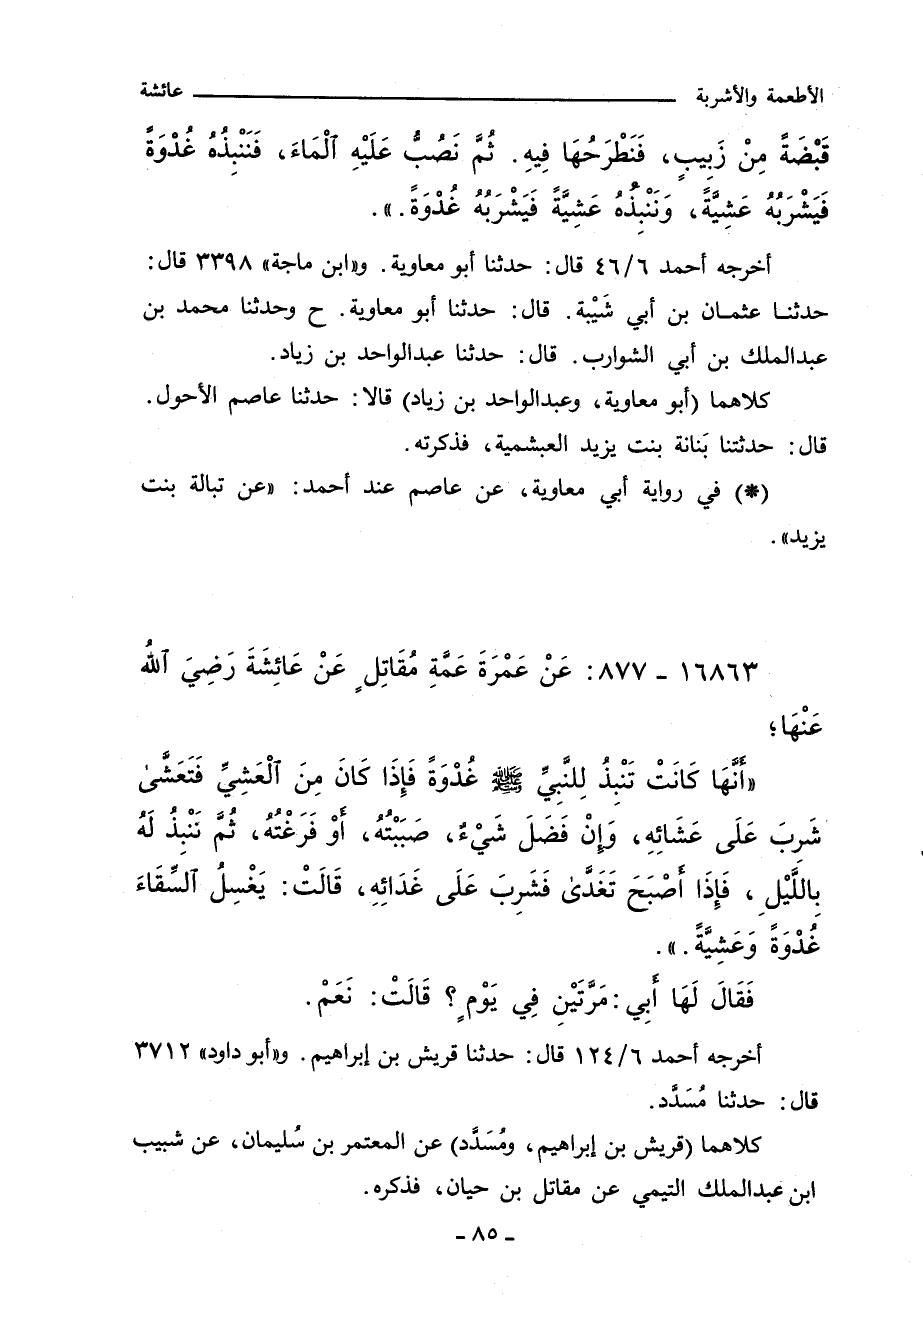 الأطعمة والأشربة ـــــــــ عائشة
قَبْضَةً مِنْ زَبِيبٍ، فَنَطْرَحُهَا فِيهِ. ثُمَّ نَصُبُّ عَلَيْهِ ٱلْمَاءَ، فَنَنْبِذُهُ غُدْوَةً
فَيَشْرَبُهُ عَشِيَّةً، وَنَنْبِذُهُ عَشِيَّةً فَيَشْرَبُهُ غُدْوَةً.».
أخرجه أحمد ٤٦/٦ قال: حدثنا أبو معاوية. و«ابن ماجة» ٣٣٩٨ قال:
حدثنـا عثمـان بن أبي شَيْبة. قال: حدثنا أبو معاوية. ح وحدثنا محمد بن
عبدالملك بن أبي الشوارب. قال: حدثنا عبدالواحد بن زياد.
كلاهما (أبو معاوية، وعبدالواحد بن زياد) قالا: حدثنا عاصم الأحول.
قال: حدثتنا بَنانة بنت يزيد العبشمية، فذكرته.
(*) في رواية أبي معاوية، عن عاصم عند أحمد: «عن تبالة بنت
يزيد».
١٦٨٦٣ ـ ٨٧٧: عَنْ عَمْرَةَ عَمَّةِ مُقَاتِلٍ عَنْ عَائِشَةَ رَضِيَ ٱللهُ
عَنْهَا؛
«أَنَّهَا كَانَتْ تَنْبِذُ لِلنَّبِيِّ ﷺ غُدْوَةً فَإِذَا كَانَ مِنَ ٱلْعَشِيِّ فَتَعَشَّىٰ
شَرِبَ عَلَى عَشَائِهِ، وَإِنْ فَضَلَ شَيْءٌ، صَبَبْتُهُ، أَوْ فَرَغْتُهُ، ثُمَّ نَنْبِذُ لَهُ
بِاللَّيْلِ، فَإِذَا أَصْبَحَ تَغَدَّىٰ فَشَرِبَ عَلَى غَدَائِهِ، قَالَتْ: يَغْسِلُ ٱلسِّقَاءَ
غُدْوَةً وَعَشِيَّةً.».
فَقَالَ لَهَا أَبِي: مَرَّتَيْنِ فِي يَوْمٍ؟ قَالَتْ: نَعَمْ.
أخرجه أحمد ١٢٤/٦ قال: حدثنا قريش بن إبراهيم. و«أبو داود» ٣٧١٢
قال: حدثنا مُسَدَّد.
كلاهما (قريش بن إبراهيم، ومُسَدَّد) عن المعتمر بن سُليمان، عن شبيب
ابن عبدالملك التيمي عن مقاتل بن حيان، فذكره.
ـ ٨٥ ـ